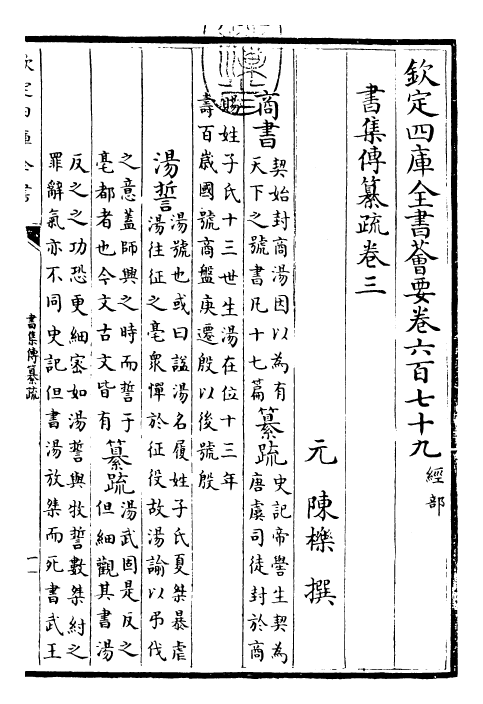 欽定四庫全書薈要卷六百七十九 經部
書集傳纂疏卷三
元 陳櫟 撰
商書
契始封商湯因以為有
天下之號書凡十七篇
纂疏
史記帝嚳生契為
唐虞司徒封於商
賜姓子氏十三世生湯在位十三年
壽百歲國號商盤庚遷殷以後號殷
湯誓
湯號也或曰諡湯名履姓子氏夏桀暴虐
湯往征之亳衆憚於征役故湯諭以弔伐
之意蓋師興之時而誓于
亳都者也今文古文皆有
纂疏
湯武固是反之
但細觀其書湯
反之之功恐更細密如湯誓與牧誓數桀紂之
罪辭氣亦不同史記但書湯放桀而死書武王
欽定四庫全書
書集傳纂疏
一